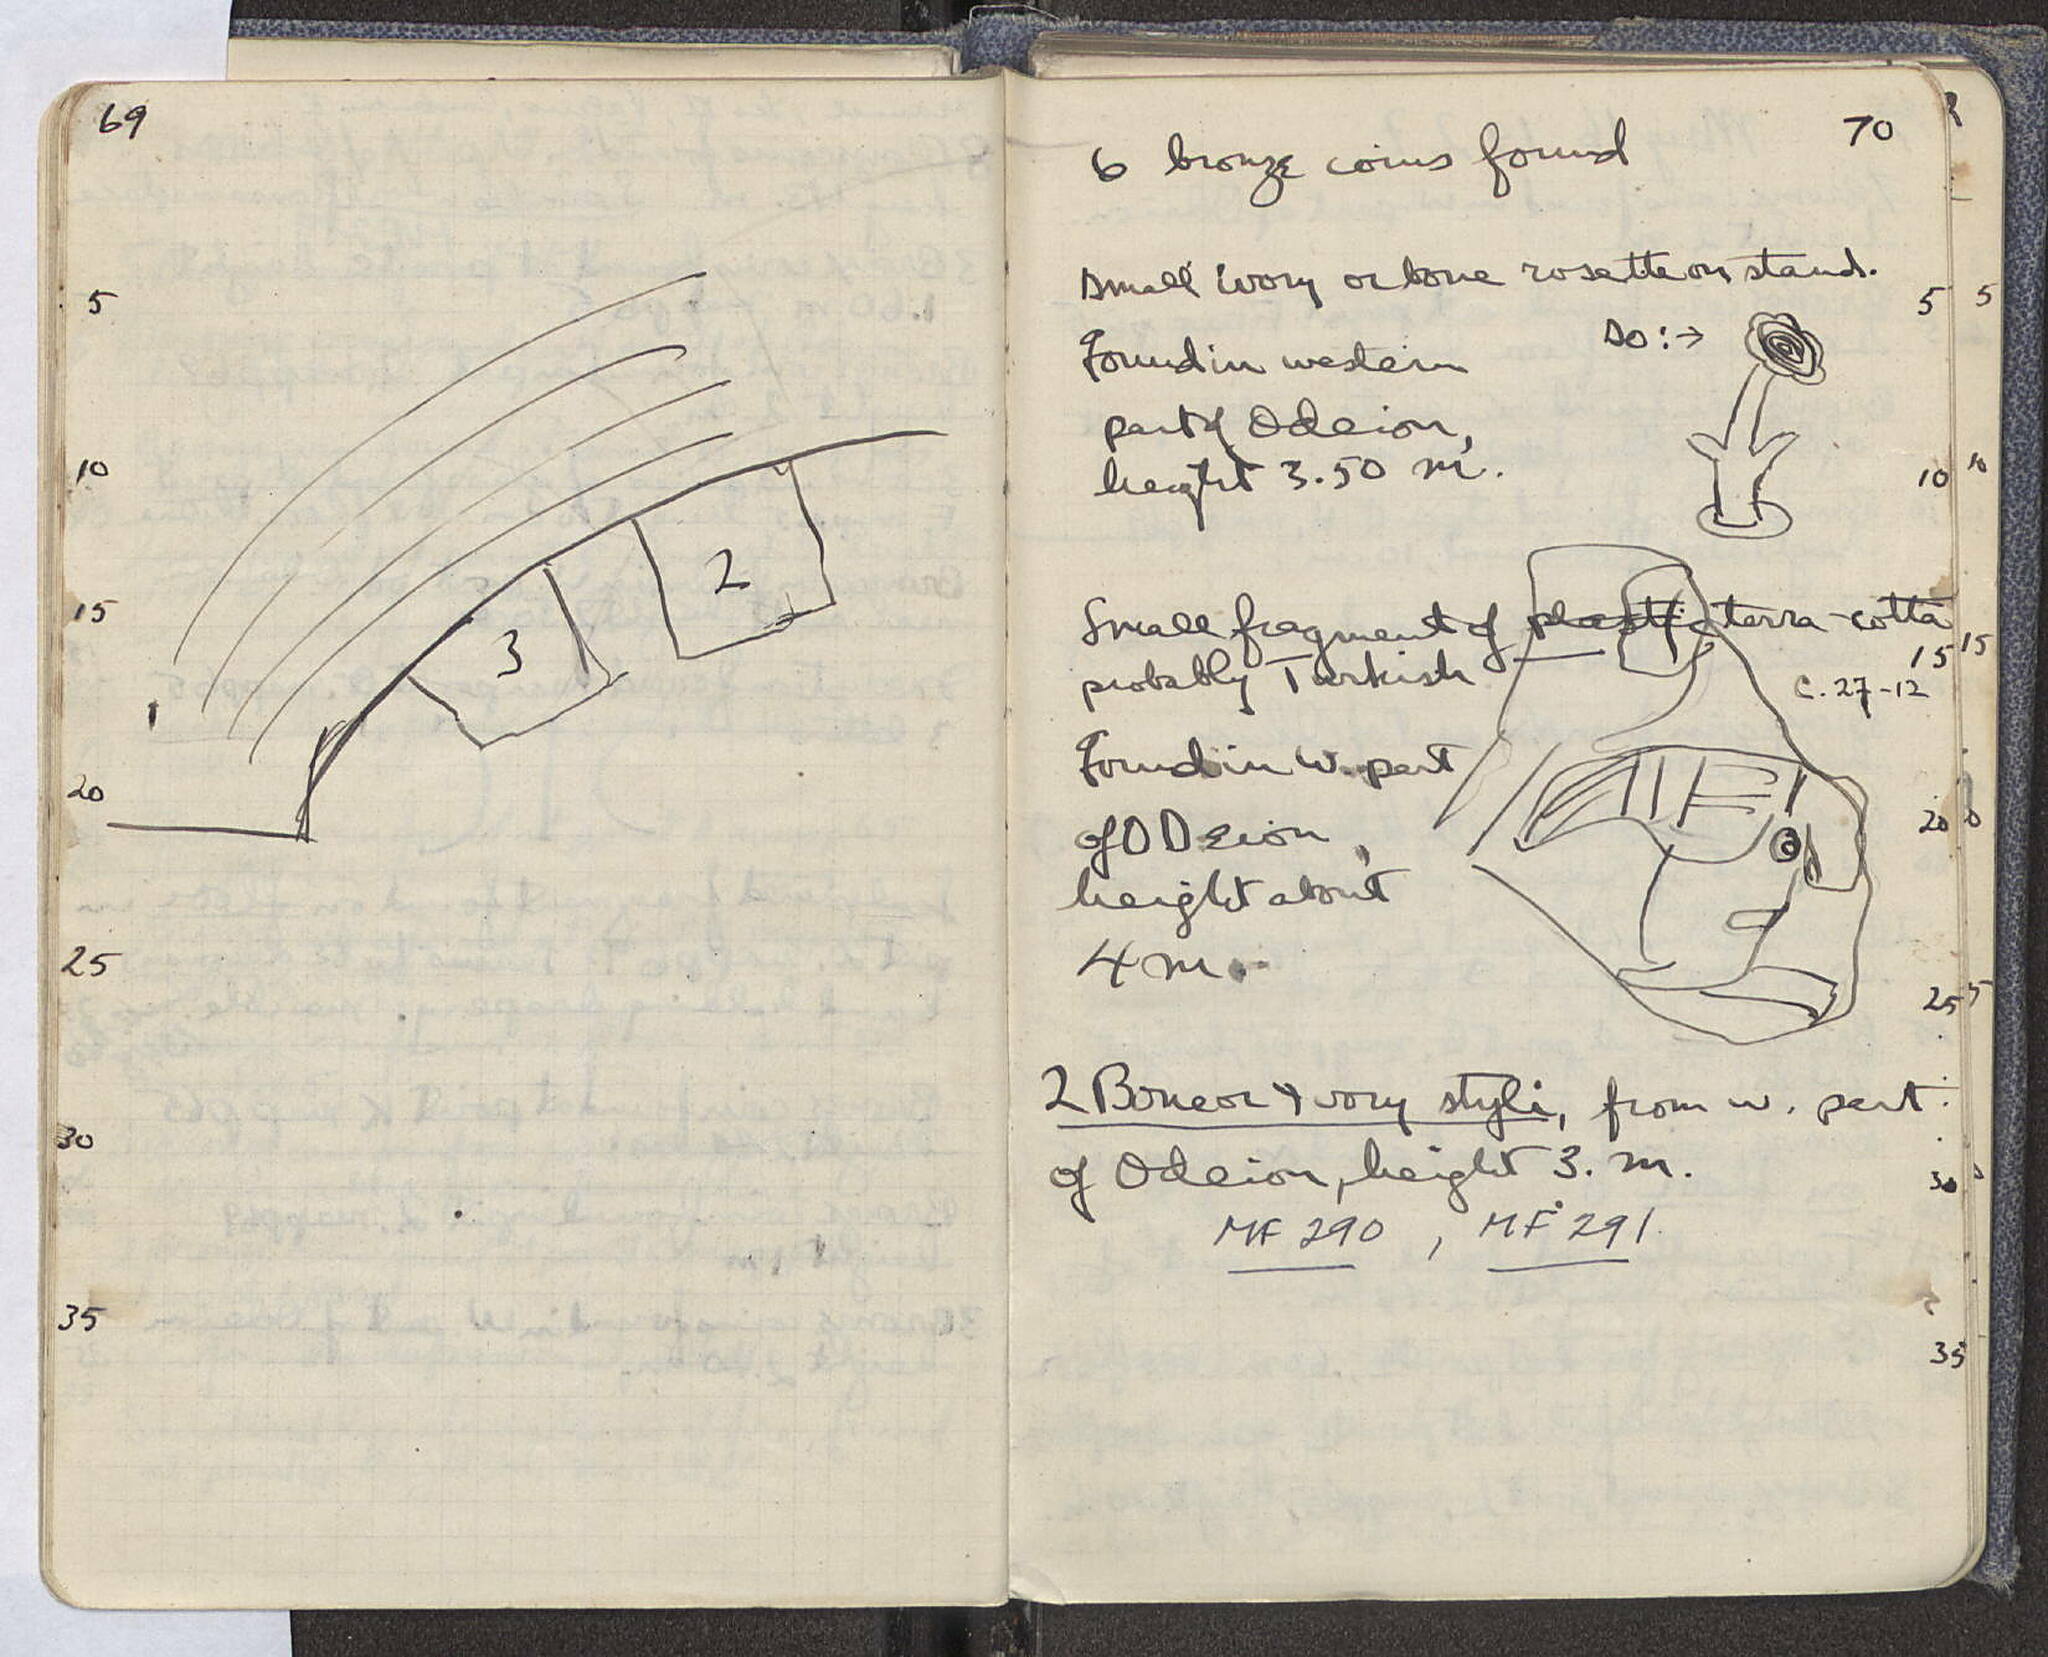 69
5
10
15
20
25
30
35
1
2
3
70
6 bronze coins found
Small ivory or bone rosette on stand.
so: →
Found in western
part of Odeion,
height 3.50 m.
Small fragment of plastic terra-cotta
probably Turkish
C. 27-12
Found in W. part
of ODeion,
height about
4 m.
2 Bone or Ivory styli, from w. part
of Odeion, height 3. m.
MF 290, MF 291
5
10
15
20
25
30
35
5
10
15